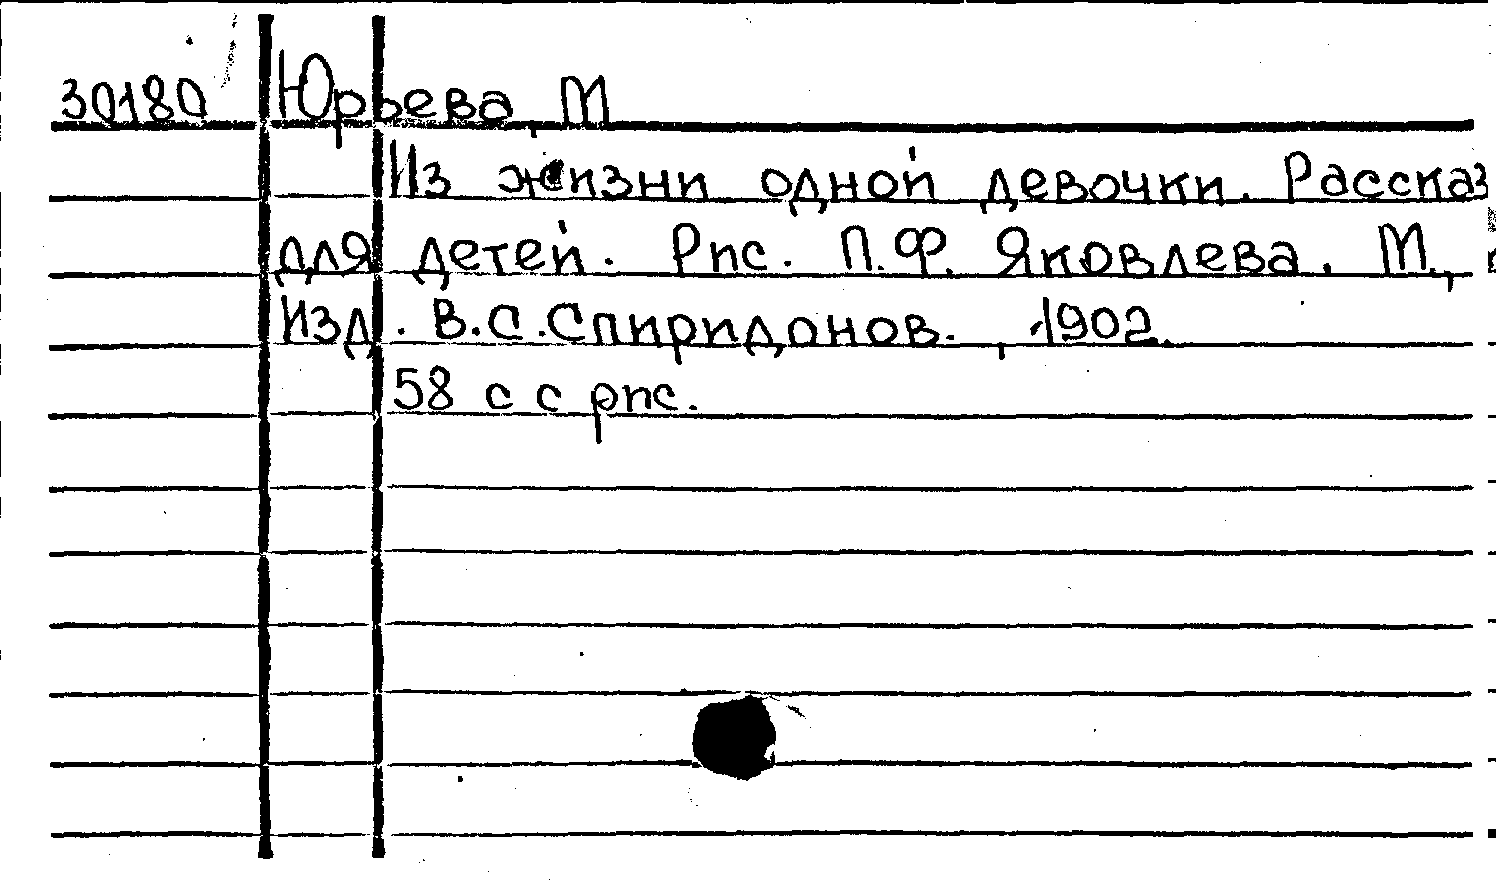 30180 Юрьева, М
Из жизни одной девочки. Рассказ
для детей. Рис. П.Ф. Яковлева. М.,
Изд. В.С.Спиридонов., 1902.
58 с с рис.